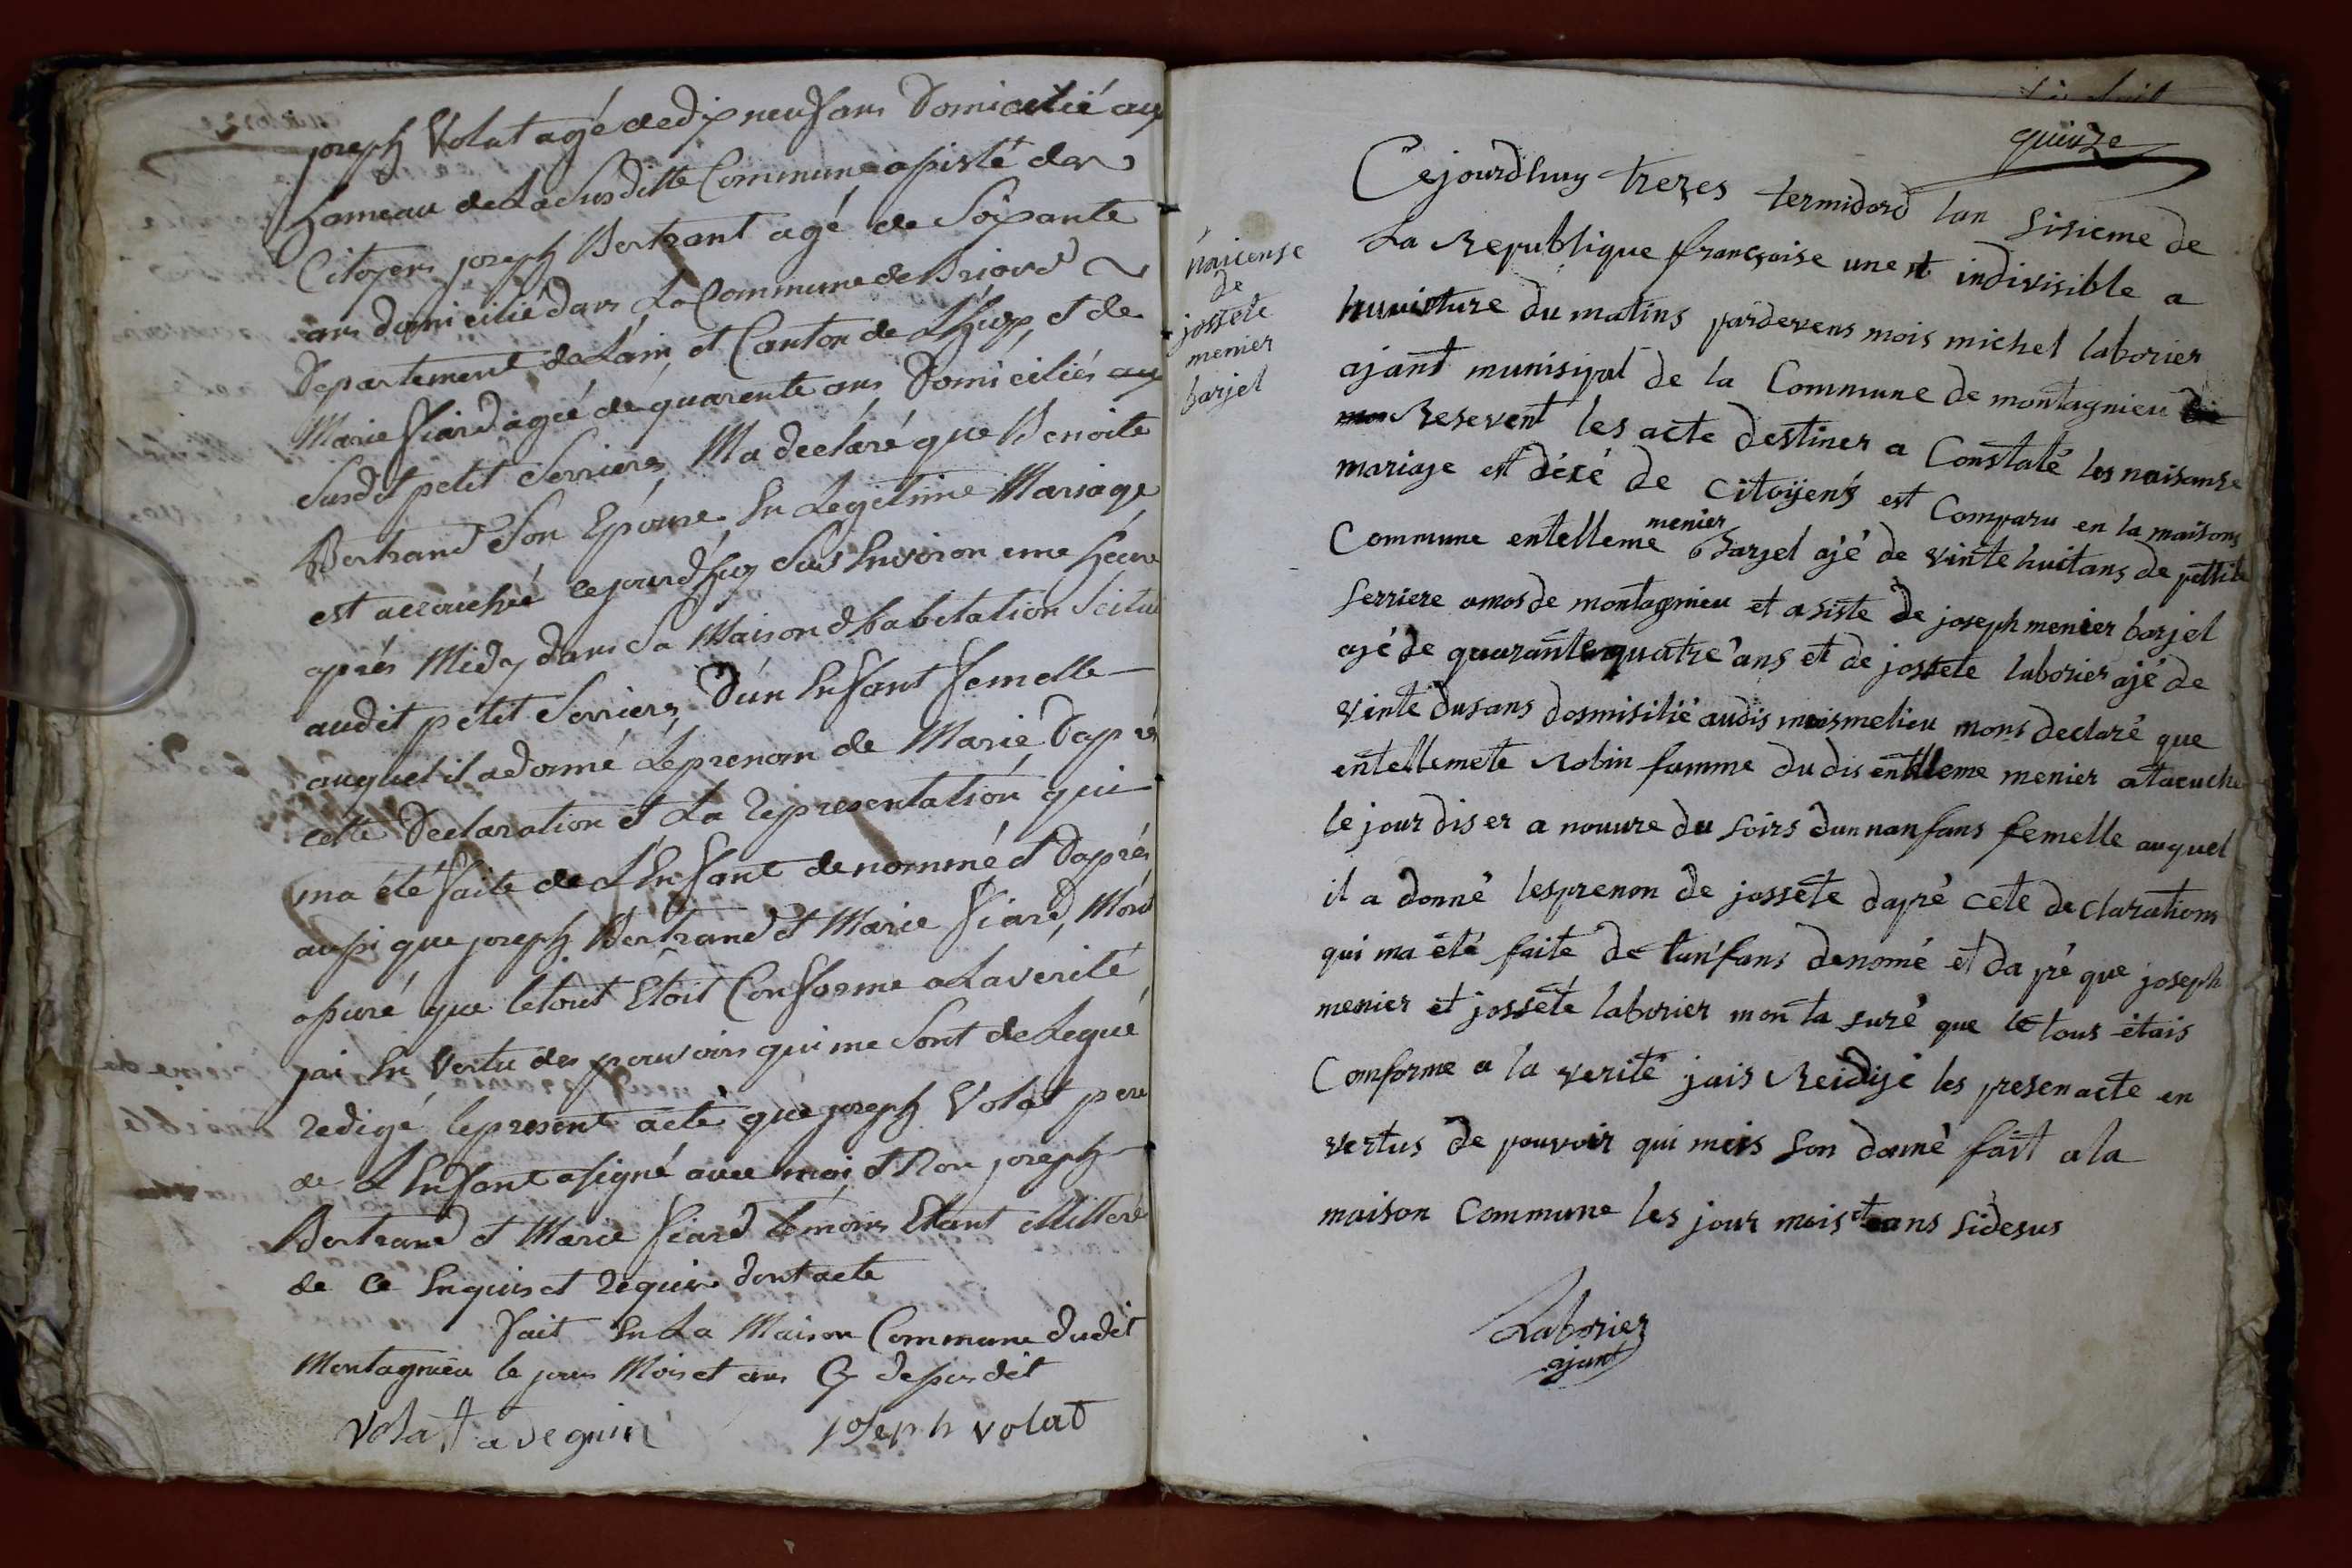 joseph Volat agé de dix neuf ans Domicilié au
hameau de La Susditte Commune assisté des
Citoyens joseph Bertrant agé de Soixante
ans domicilié dans La Commune de Briord
Departement de Lain, et Canton de Lhuis, et de
Marie fiard agée de quarente ans Domiciliés au
Susdit petit Serrieres Ma declaré que Benoite
Bertrand Son Epouse En Legetime Mariage
est accouchée cejourdhuy Sus Environ une heure
aprés Midy dans Sa Maison dhabitation Scitué
audit petit Serrieres D'un Enfant femelle
auquel il a donné Le prenom de Marie Daprés
cette Declaration et La Representation qui
ma été faite de L'Enfant denommé et Daprés
aussi que joseph Bertrand et Marie fiard, Mont
assuré que le tout Etoit Conforme a La verité
jai En Vertu des pouvoirs qui me Sont delegué
redigé le present acte que joseph Volat pere
de L'Enfant a signé avec moi, et Non joseph
Bertrand et Marie fiard temoins Etant illitteré
de Ce Enquis et Requis dont acte
fait En La Maison Commune dudit
Montagnieu le jour Mois et ans Cy dessus dit
Volat joseph volat
quinze
Cejourdhuy trezes termidord lan sisieme de
La Republique françoise une et indivisible a
huuieture du matins pardevens mois michel laborier
ajant munisipal de la Commune de montagnieu
Resevent les acte destiner a Constaté les naisanse
mariaje est déxé de citoyens est Comparu en la maisons
menier
Commune entelleme barjel ajé de vinte huit ans de pettite
serriere amos de montagnieu et asiste de joseph menier barjel
ajé de quarante quatre ans et de jossete laborier ajé de
vinte dusans dosmisilié audis moismelieu mons declaré que
entellemete Robin famme du dis entelleme menier atacuche
le jour dis er a nouure du soirs dunnanfans femelle auquel
il a donné lesprenon de jossete dapré cete declarations
qui ma été faite de lanfans denomé et da pré que joseph
menier et jossete laborier mon ta suré que le tous étais
Comforme a la verité jais Reidijé les presenacte en
vertus de pouvoir qui meis son donné fait a la
maison Commune les jour mois et ans sidesus
Laborier
ajant
naicense
de
jossete
menier
barjel